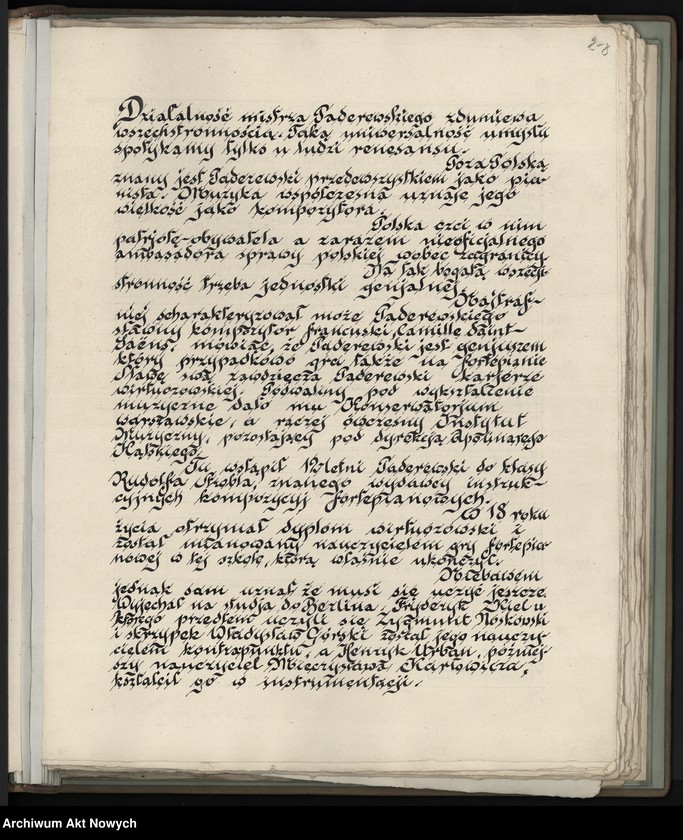 2-8
Działalność mistrza Paderewskiego zdumiewa
wszechstronnością. Taką uniwersalność umysłu
spotykamy tylko u ludzi renesansu.
Poza Polską
znany jest Paderewski przedewszystkiem jako pia-
nista. Muzyka współczesna uznaje jego
wielkość jako kompozytora.
Polska czci w nim
patrjotę-obywatela a zarazem nieoficjalnego
ambasadora sprawy polskiej wobec zagranicy
Na tak bogatą wszech-
stronność trzeba jednostki genjalnej.
Najtraf-
niej scharakteryzował może Paderewskiego
sławny kompozytor francuski, Camille Saint-
Saëns, mówiąc, że Paderewski jest genjuszem
który przypadkowo gra także na fortepianie
Sławę swą zawdzięcza Paderewski karjerze
wirtuozowskiej. Podwaliny pod wykształcenie
muzyczne dało mu Konserwatorjum
warszawskie, a raczej ówczesny Instytut
Muzyczny, pozostający pod dyrekcją Apolinarego
Kątskiego.
Tu wstąpił 12letni Paderewski do klasy
Rudolfa Strobla, znanego wydawcy instruk-
cyjnych kompozycyj fortepianowych.
W 18 roku
życia otrzymał dyplom wirtuozowski i
został mianowany nauczycielem gry fortepia-
nowej w tej szkole, którą właśnie ukończył.
Niebawem
jednak sam uznał, że musi się uczyć jeszcze.
Wyjechał na studja do Berlina. Fryderyk Kiel u
którego przedtem uczyli się Zygmunt Noskowski
i skrzypek Władysław Górski został jego nauczy-
cielem kontrapunktu, a Henryk Urban, później-
szy nauczyciel Mieczysława Karłowicza,
kształcił go w instrumentacji.
Archiwum Akt Nowych